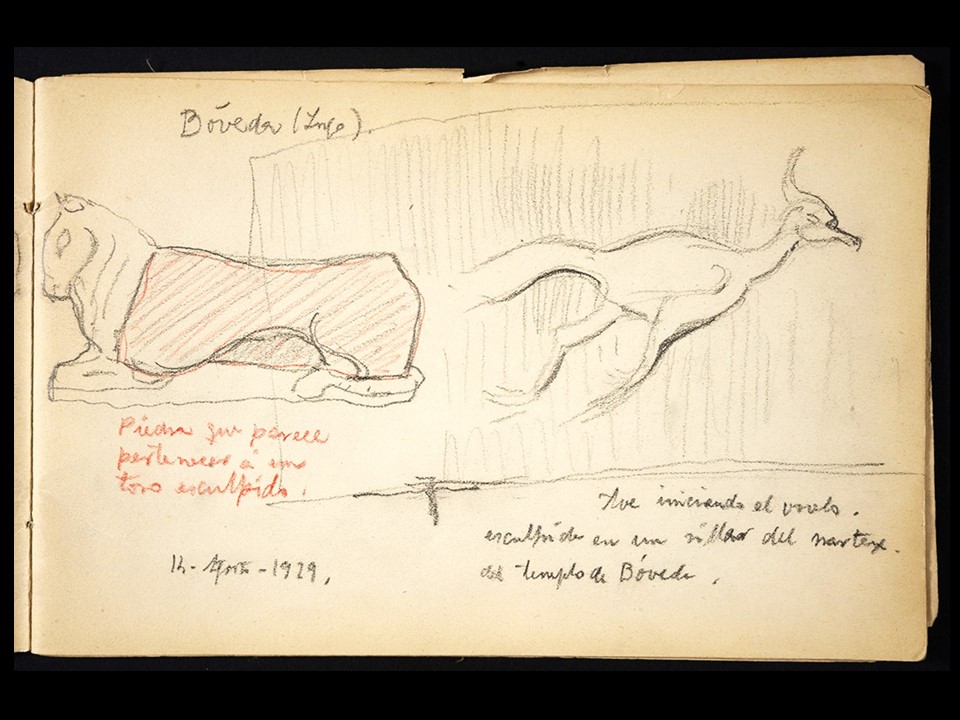 Bóveda (Lugo).
Piedra que parece
pertenecer á un
toro esculpido.
14 - Agosto - 1929.
Ave iniciando el vuelo.
esculpida en un sillar del nartex.
del templo de Bóveda.